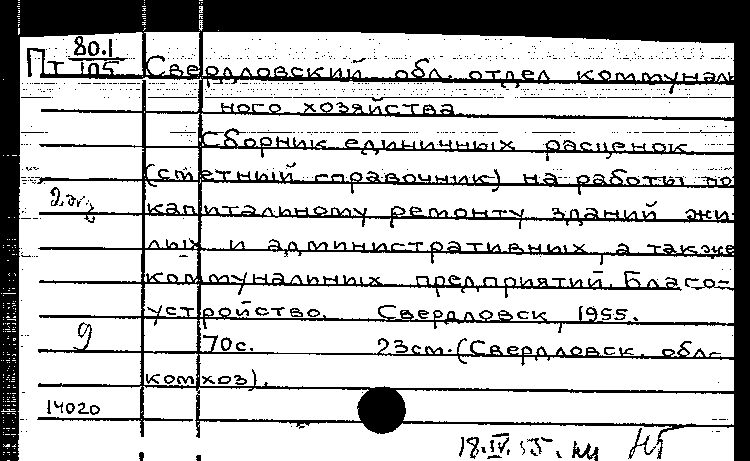 Пт 80.1/105 Свердловский обл. отдел коммуналь
ного хозяйства.
Сборник единичных расценок
(сметный справочник) на работы по
2 экз
капитальному ремонту зданий жи
лых и административных, а также
коммунальных предприятий. Благо-
устройство. Свердловск, 1955.
9 70с. 23см. (Свердловск. обл-
комхоз).
14020
18.IV.55.